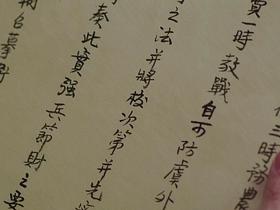 二時講農
買一時教戰自可防虞外
之法并將校次第并先
奏此實強兵節財之要